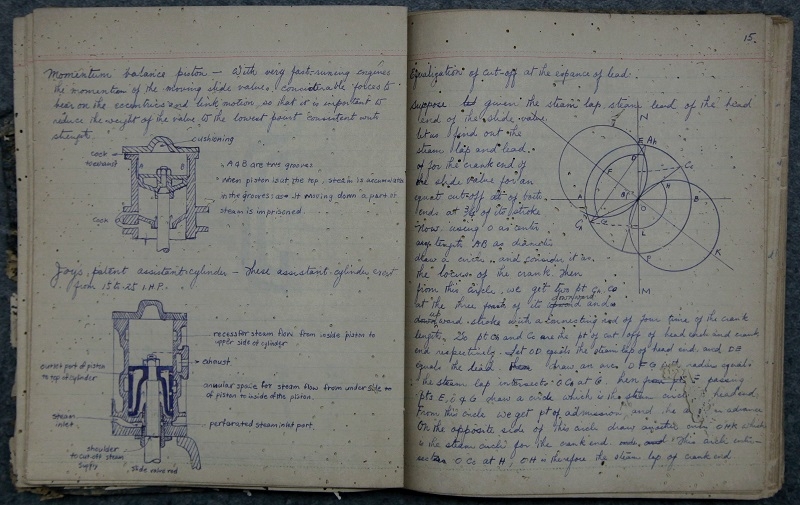 Momentum balance piston — With very fast-running engines
the momentum of the moving slide valves, considerable forces to
bear on the eccentrics and link motion, so that it is important to
reduce the weight of the valve to the lowest point consistent with
strength.
cushioning
to exhaust
A & B are two grooves
When piston is at the top, steam is accumulated
in the grooves; as it moving down a part of
steam is imprisoned.
Joy's patent assistant-cylinder — These assistant-cylinder exert
from 15 to 25 I.H.P.
recess for steam flow from inside piston to
upper side of cylinder
exhaust
outlet part of piston
to top of cylinder
annular space for steam flow from under side
of piston to inside of the piston.
steam
inlet
perforated steam inlet port.
shoulder
to cut off steam
supply
Slide valve rod
15.
Equalization of cut-off at the expance of lead.
Suppose given the steam lap, steam lead of the head
end of the slide valve
let us find out the
steam lap and lead
of for the crank end of
the slide valve for an
equal cut-off at of both
ends at 3/4 of its stroke
Now using O as centre
any length AB as diameter
draw a circle and consider it as
the locus of the crank. Then
from this circle, we get two pt
at the three fourth of its downward and
upward stroke with a connecting rod of four time of the crank
length. So pt and Cc are the pt of cut off of head end and crank
end respectively. Let OD equals the steam lap of head end, and DE
equals the lead. draw an arc DFG with radius equals
the steam lap intersects at G. Then passing
pts E, O, G draw a circle which is the steam circle headend
From this circle we get pt of admission, and the advance
On the opposite side of this arch draw another circle OHK which
is the steam circle for the crank end. This circle
O Cc at H, OH is therefore the steam lap of crank end
N
M
E
D
F
A
B
O
H
L
P
K